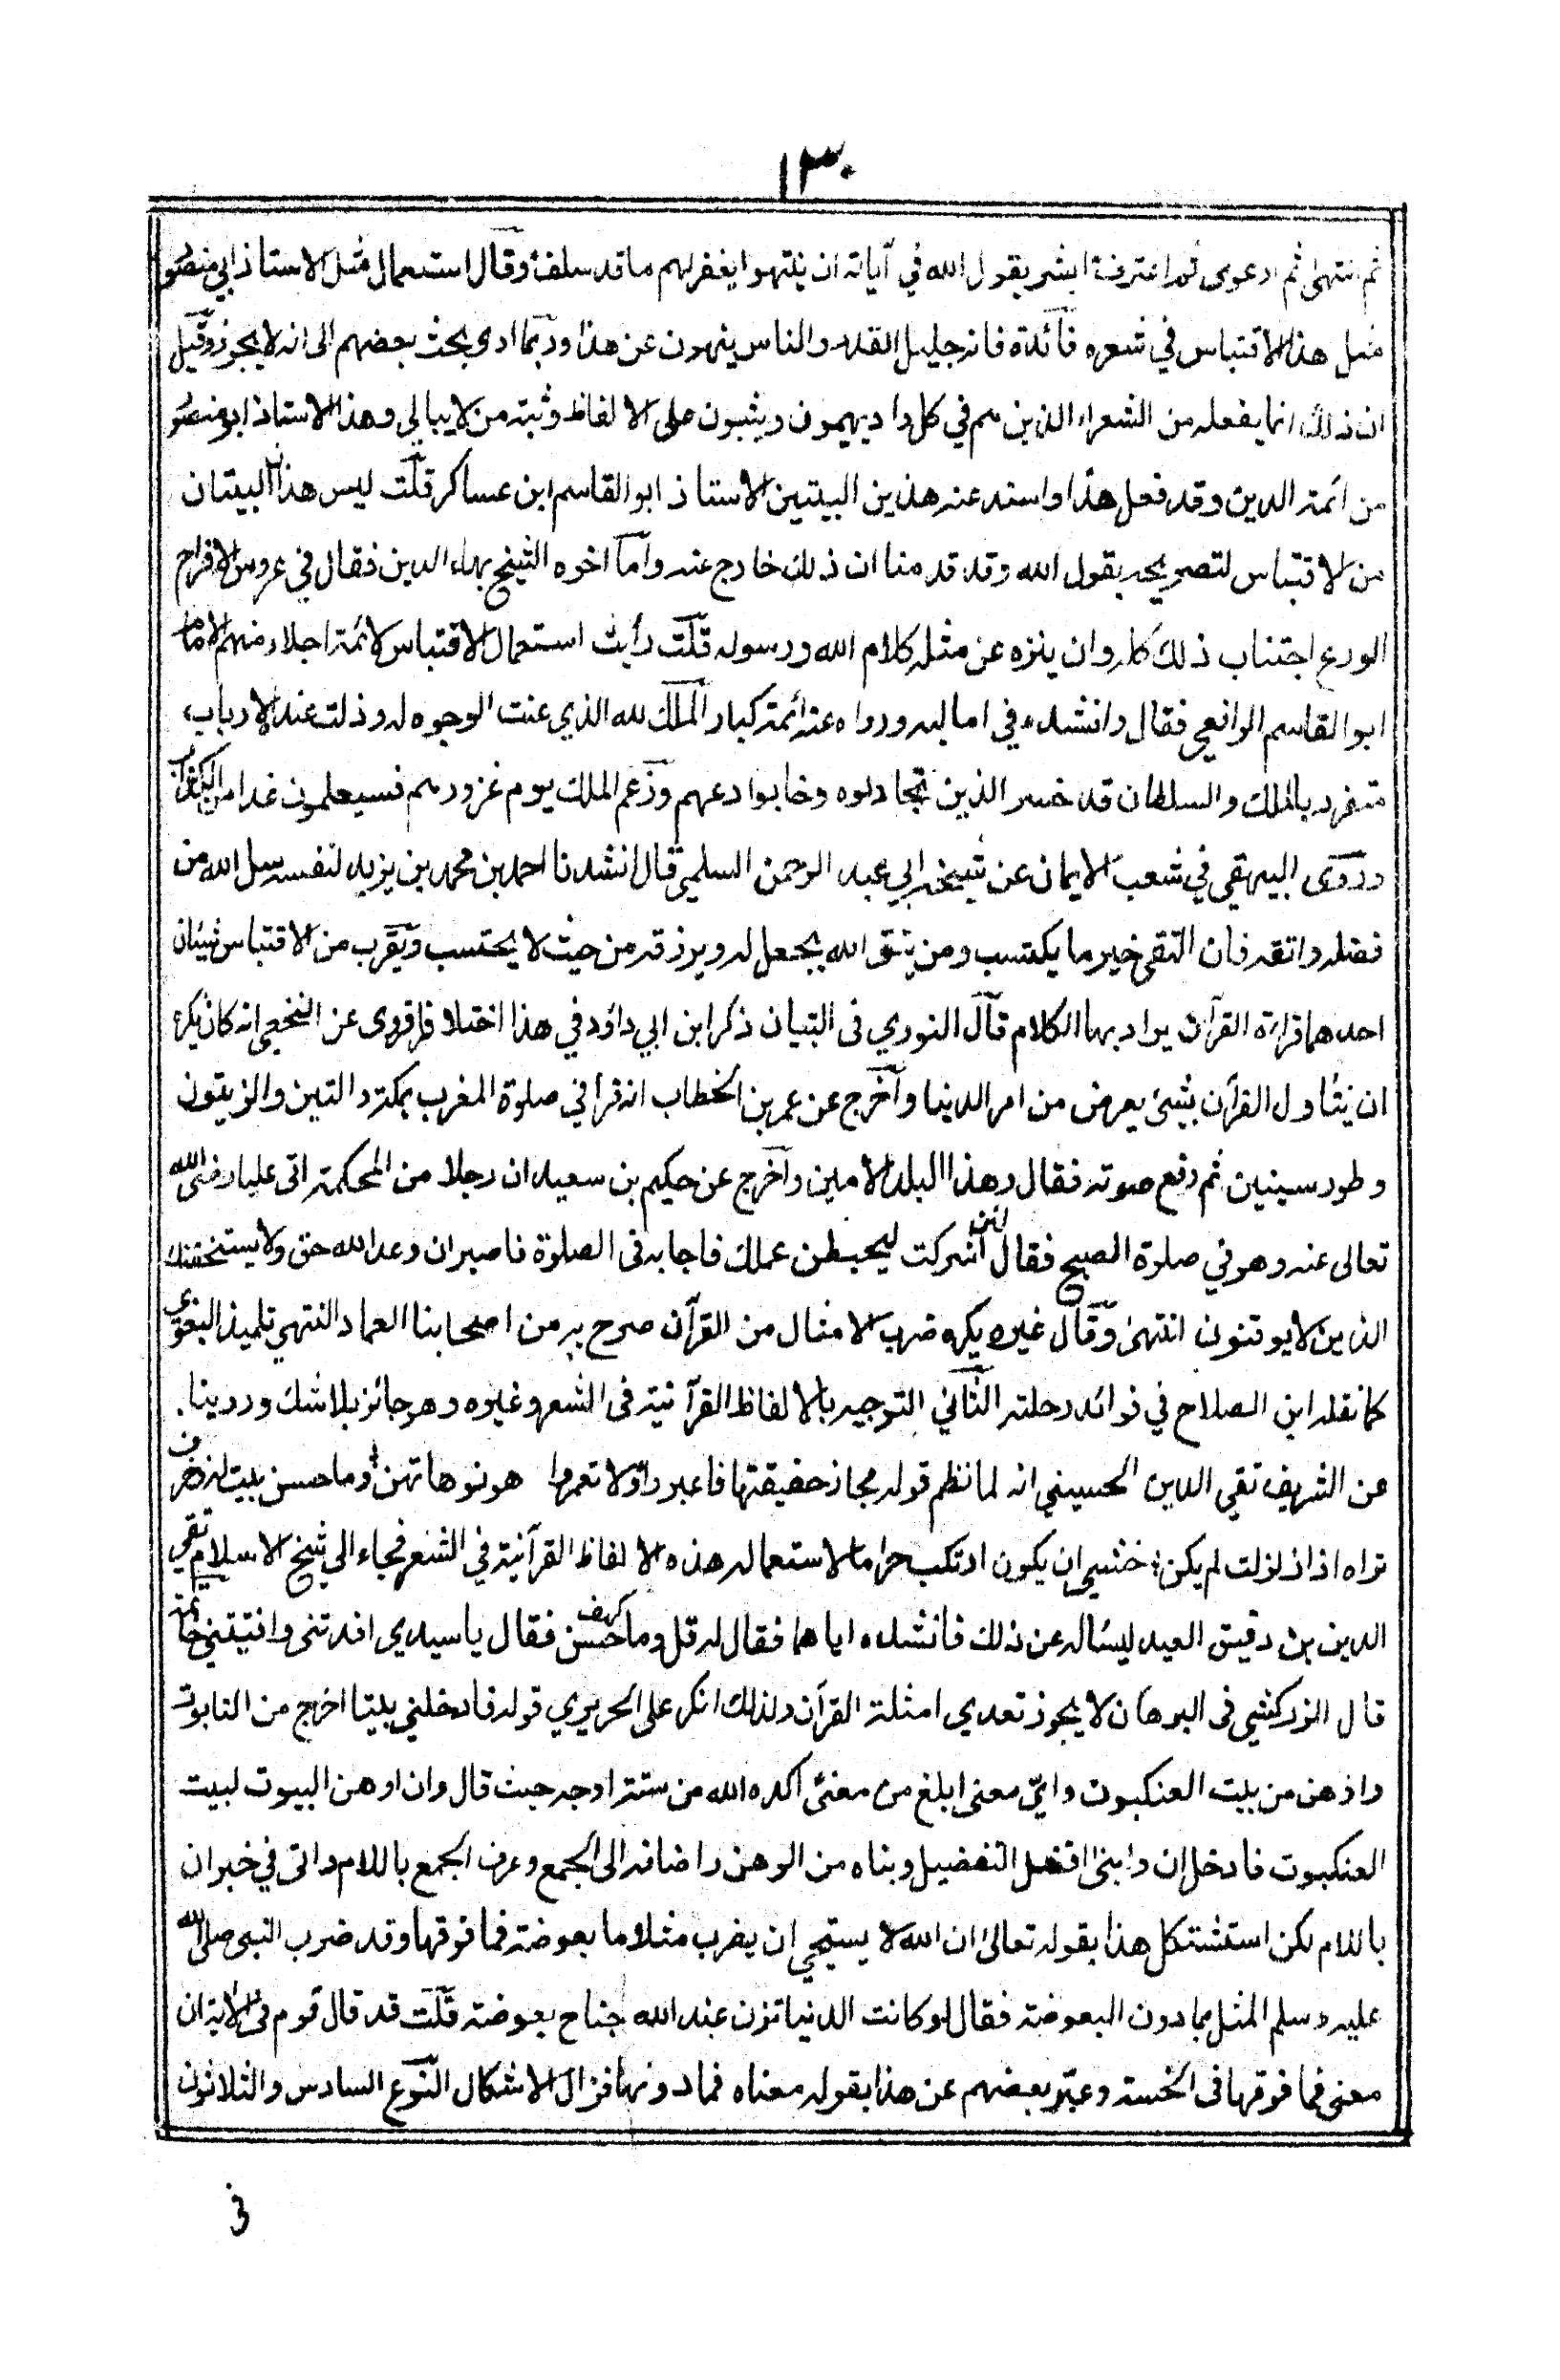 ١٣٠
ثم انتهى ثم ارعوى ثم اعترف ابشر بقول الله في آياته ان ينتهوا يغفر لهم ما قد سلف وقال استعمال مثل الاستاذ ابي منصور
مثل هذا الاقتباس في شعره فائدة فانه جليل القدر والناس ينهون عن هذا وربما ادى بحث بعضهم الى انه لا يجوز وقيل
ان ذلك انما يفعله من الشعراء الذين هم في كل واد يهيمون ويثبون على الالفاظ وثبة من لا يبالي وهذا الاستاذ ابو منصور
من ائمة الدين وقد فعل هذا واسند عنه هذين البيتين الاستاذ ابو القاسم ابن عساكر قلت ليس هذان البيتان
من الاقتباس لتصريحه بقول الله وقد قدمنا ان ذلك خارج عنه واما اخوه الشيخ بهاء الدين فقال في عروس الافراح
الورع اجتناب ذلك كله وان ينزه عن مثله كلام الله ورسوله قلت رأيت استعمال الاقتباس لائمة اجلاء منهم الامام
ابو القاسم الرافعي فقال وانشده في اماليه ورواه عنه ائمة كبار الملك لله الذي عنت الوجوه له وذلت عنده الارباب
متفرد بالملك والسلطان قد خسر الذين تجادلوه وخابوا دعهم وزعم الملك يوم غرورهم فسيعلمون غدا من الكذاب
وروى البيهقي في شعب الايمان عن شيخه ابي عبد الرحمن السلمي قال انشدنا احمد بن محمد بن يزيد لنفسه سل الله من
فضله واتقه فان التقى خير ما يكتسب ومن يتق الله يجعل له ويرزقه من حيث لا يحتسب ويقرب من الاقتباس شيئان
احدهما قراءة القرآن يراد بها الكلام قال النووي فى التبيان ذكر ابن ابي داؤد في هذا اختلافا فروى عن النخعي انه كان يكره
ان يتأول القرآن بشئ يعرض من امر الدنيا وآخرج عن عمر بن الخطاب انه قرأ في صلوة المغرب بمكة والتين والزيتون
وطور سينين ثم رفع صوته فقال وهذا البلد الامين وآخرج عن حكيم بن سعيد ان رجلا من المحكمة اتى عليا رضى الله
تعالى عنه وهو في صلوة الصبح فقال لئن اشركت ليحبطن عملك فاجابه فى الصلوة فاصبر ان وعد الله حق ولا يستخفنك
الذين لا يوقنون انتهى وقال غيره يكره ضرب الامثال من القرآن صرح به من اصحابنا العماد النتهي تلميذ البغوي
كما نقله ابن الصلاح في فوائد رحلته الثاني التوجيه بالالفاظ القرآنية فى الشعر وغيره وهو جائز بلا شك وروينا
عن الشريف تقي الدين الحسيني انه لما نظم قوله مجاز حقيقتها فاعبروا ولا تعمروا هونوها تهن وما حسن بيت له زخرف
تراه اذا زلزلت لم يكن خشي ان يكون ارتكب حراما لاستعماله هذه الالفاظ القرآنية في الشعر فجاء الي شيخ الاسلام تقي
الدين بن دقيق العيد ليسأله عن ذلك فانشده اياهما فقال له قل وما حسن كهف فقال يا سيدي افدتني وافتيتني خاتمة
قال الزركشي فى البرهان لا يجوز تعدي امثلة القرآن ولذلك انكر على الحريري قوله فادخلني بيتا اخرج من التابوت
واوهن من بيت العنكبوت واي معنى ابلغ من معنى اكده الله من ستة اوجه حيث قال وان اوهن البيوت لبيت
العنكبوت فادخل ان وابنى افعل التفضيل وبناه من الوهن واضافه الى الجمع وعرف الجمع باللام واتى في خبر ان
باللام لكن استشكل هذا بقوله تعالى ان الله لا يستحيي ان يضرب مثلا ما بعوضة فما فوقها وقد ضرب النبى صلى الله
عليه وسلم المثل بما دون البعوضة فقال لو كانت الدنيا تزن عند الله جناح بعوضة قلت قد قال قوم فى الاية ان
معنى فما فوقها فى الخسة وعبر بعضهم عن هذا بقوله معناه فما دونها فزال الاشكال النوع السادس والثلاثون
في